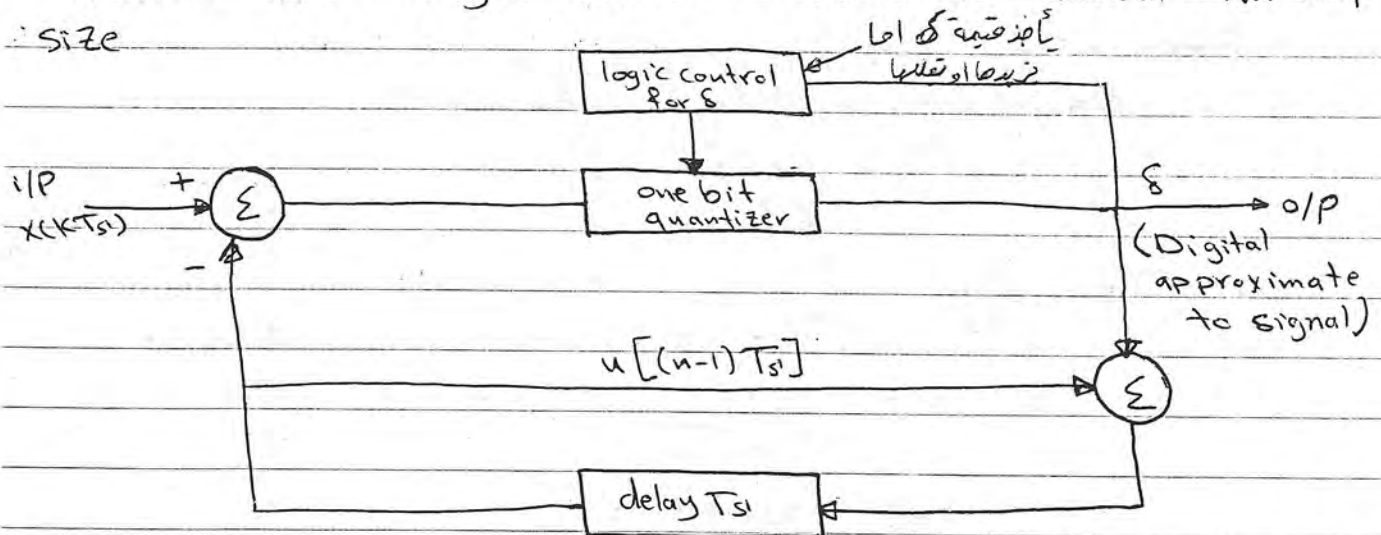 size
يأخذ قيمة δ اما
نزيدها او نقللها
logic control
for δ
i/P
x(kTs')
+
Σ
-
one bit
quantizer
δ
o/p
(Digital
approximate
to signal)
u[(n-1)Ts']
Σ
delay Ts'